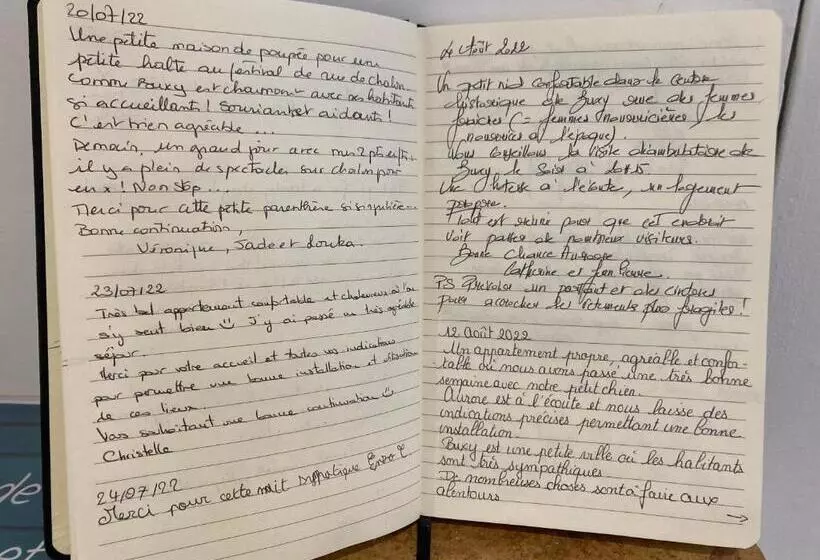 20/07/22
Une petite maison de poupée pour une
petite halte au festival de rue de Chalon.
Comm Buxy est charmant avec ses habitants
si accueillants ! Souriant et aidants !
C'est bien agréable ...
Demain, un grand jour avec mes 2 pts enfts.
il y a plein de spectacles sur Chalon pour
eux ! Non stop ...
Merci pour cette petite parenthèse si singulière.
Bonne continuation,
Véronique, Jade et Louka.
23/07/22
Très bel appartement confortable et chaleureux où l'on
s'y sent bien J'y ai passé un très agréable
séjour.
Merci pour votre accueil et toutes vos indications
pour permettre une bonne installation et
de ces lieux.
Vous souhaitant une bonne continuation
Christelle
24/07/22
Merci pour cette nuit sympatique Enzo
4 Août 2022
Un petit nid confortable dans le centre
historique de Buxy rue des femmes
(= femmes nourricières / les
nourrices à l'époque).
Nous conseillons la visite déambulatoire de
Buxy le soir à
Une hôtesse à l'écoute, un logement
propre.
Tout est pour que cet endroit
voit passer de nombreux visiteurs.
Bonne Chance Aurore
Catherine et Jean Pierre.
PS Prévoir un et des cintres
pour accrocher les vêtements plus fragiles !
12 Août 2022
Un appartement propre, agréable et confor-
table où nous avons passé une très bonne
semaine avec notre petit chien.
Aurore est à l'écoute et nous laisse des
indications précises permettant une bonne
installation.
Buxy est une petite ville où les habitants
sont très sympathiques
De nombreuses choses sont à faire aux
alentours
→
de
et